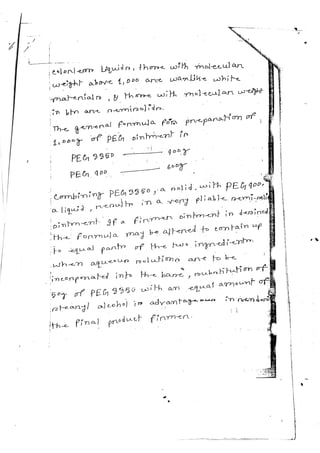 colorless liquids, those with molecular
weight above 1,000 are wax-like white
materials, & those with molecular weight
in btn are semisolids.
The general formula for preparation of
1,000g of PEG ointment is
PEG 3350 — 400g
PEG 400 — 600g
Combining PEG 3350, a solid, with PEG 400,
a liquid, results in a very pliable semi-solid
ointment. If a firmer ointment is desired
the formula may be altered to contain up
to equal parts of the two ingredients.
when aqueous solutions are to be
incorporated into the base, substitution of
50g of PEG 3350 with an equal amount of
stearyl alcohol is advantageous in render
the final product firmer.